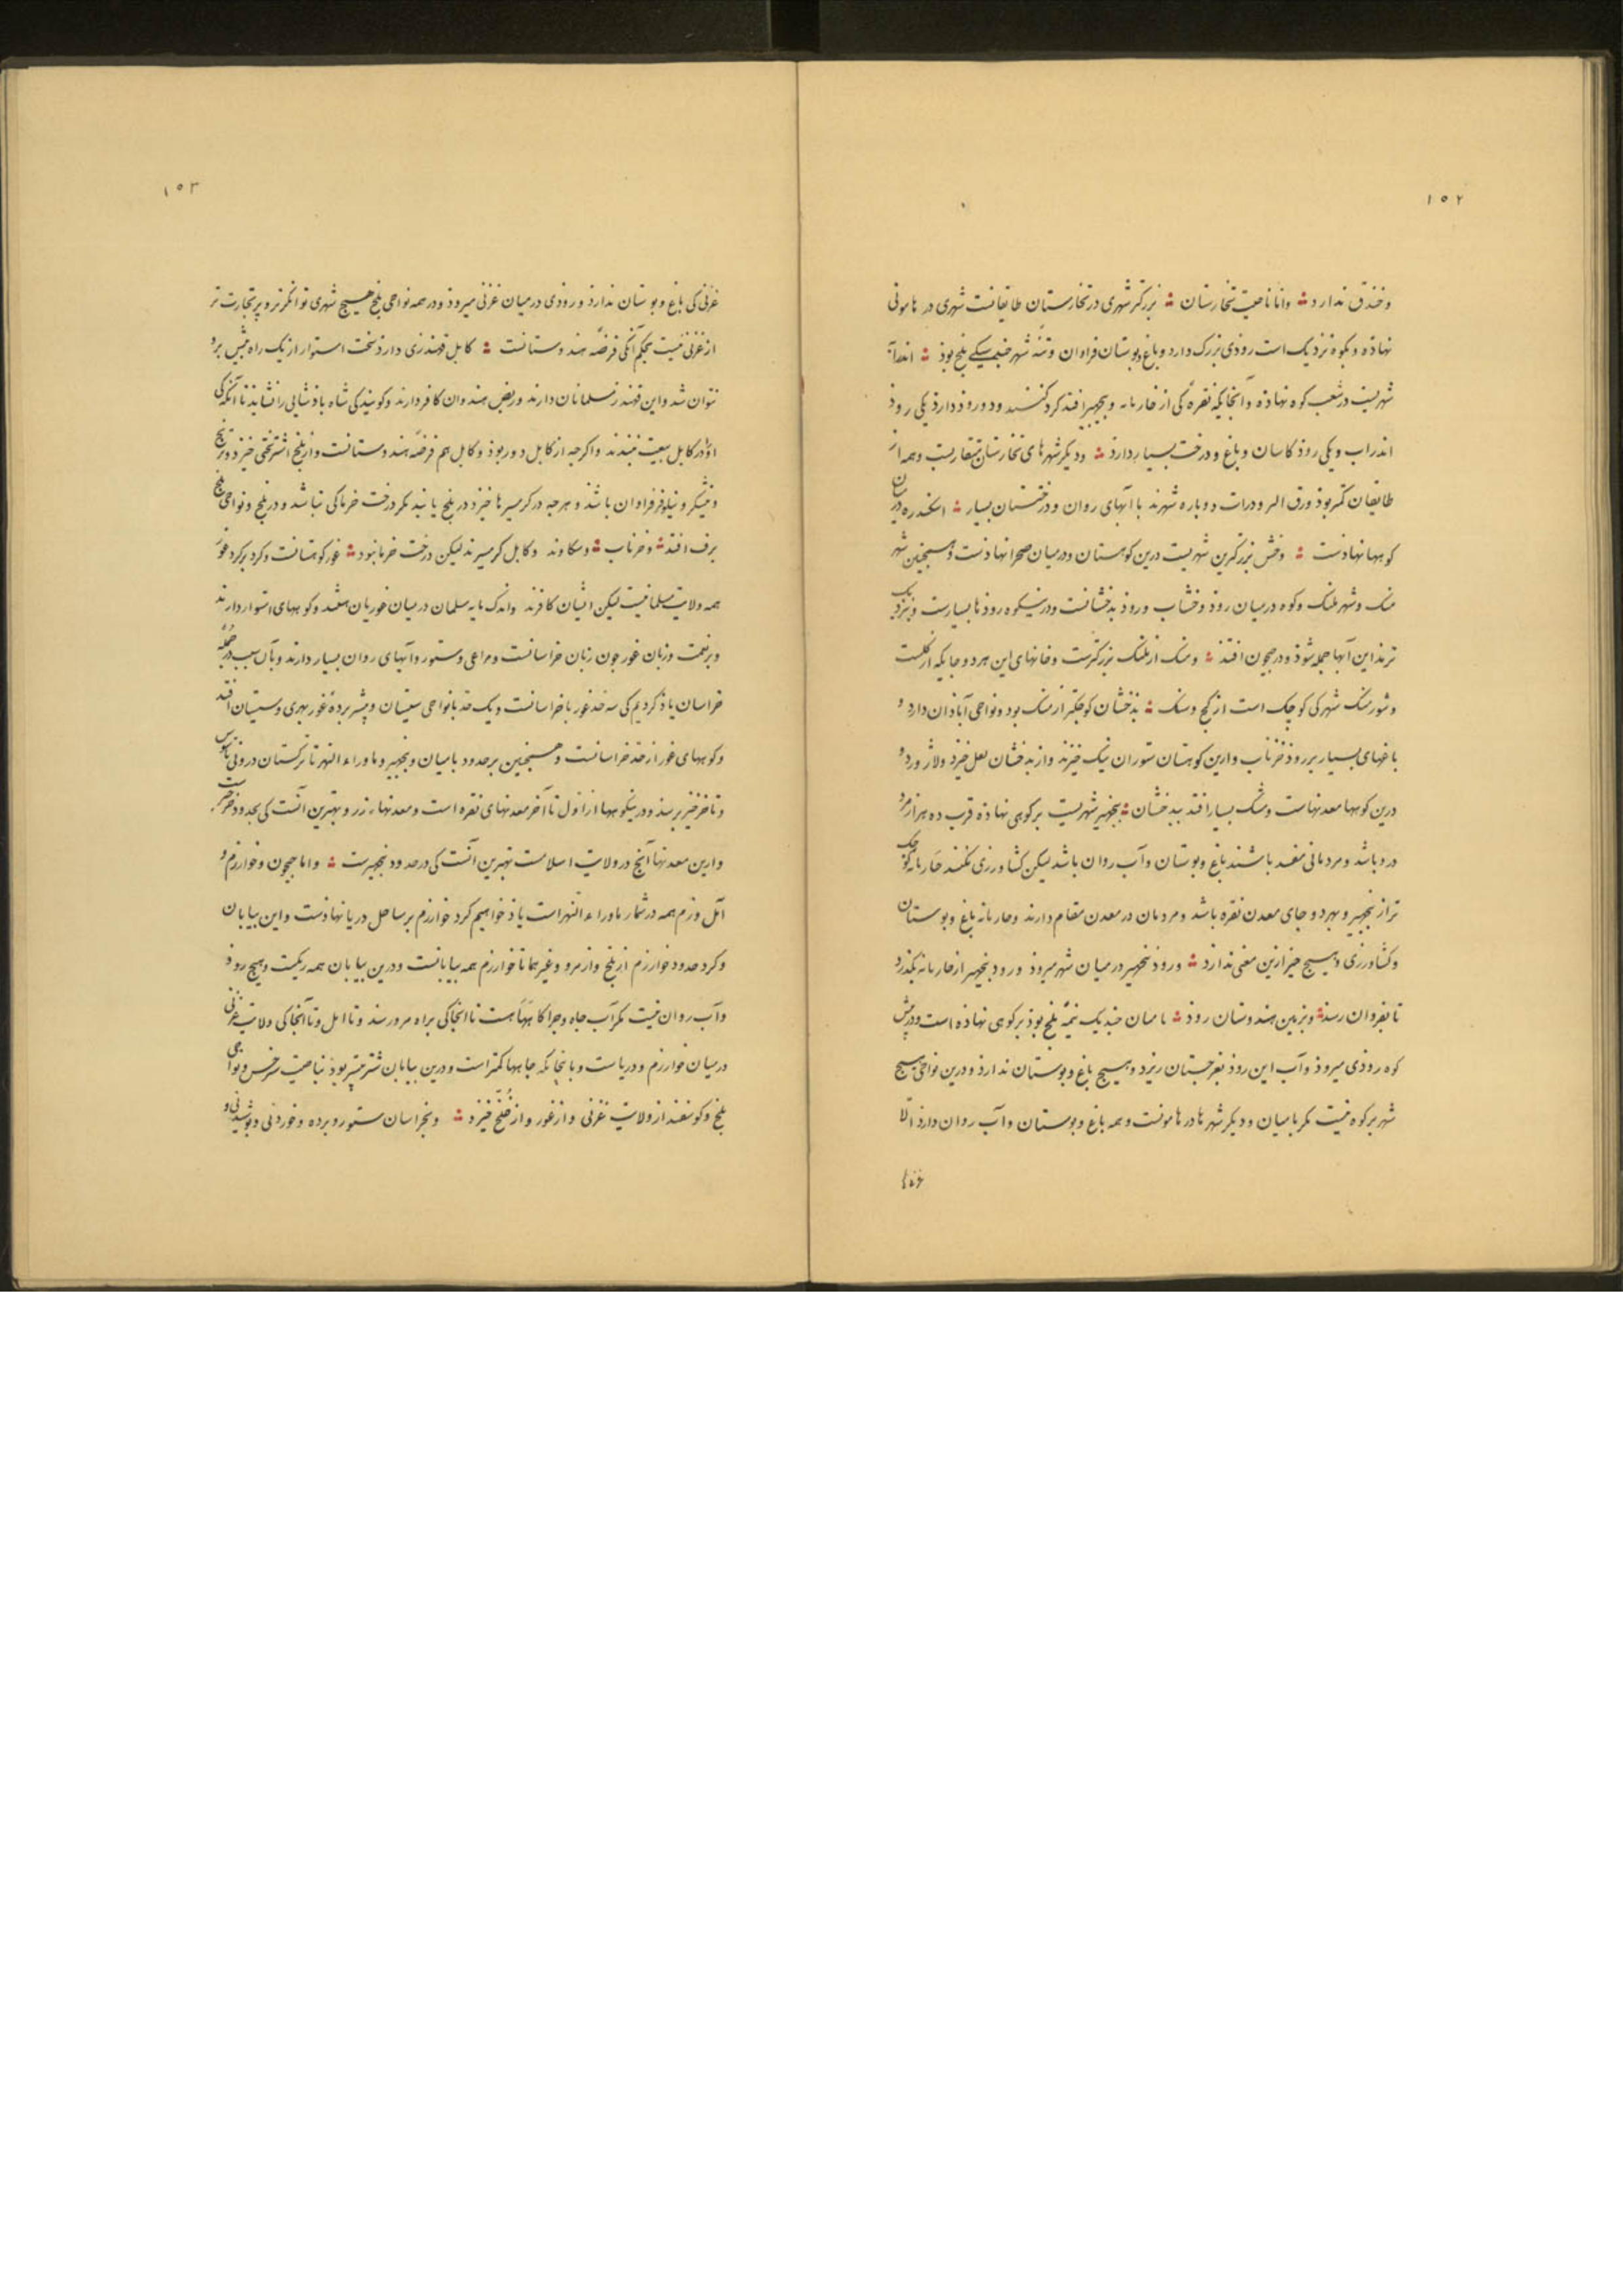 ۱۵۲
وخندق ندارد وامّا ناحیت تخارستان بزرگتر شهری در تخارستان طایقانست شهری در هامونی
نهاده و بکوه نزدیک است رودی بزرک دارد وباغ وبوستان فراوان وتنه شهر چند سیکی بلخ بوذ اندرآ
شهریست در شعب کوه نهاده وآنجایکه نقره کی از خاریانه وپنجهیر افتد کرد کنند ودو روذ دارد یکی روذ
اندراب ویکی روذ کاسان وباغ و درخت بسیار دارد ودیکر شهرهای تخارستان متقاربست وهمه از
طایقان کمتر بوذ ودرات دوباره شهرند با آبهای روان ودرختستان بسیار اسکندره در میان
کوهها نهادست وخش بزرکترین شهریست درین کوهستان ودر میان صحرا نهادست وهمچنین شهر
منک وشهر هلبک وکوه درمیان رود وخشاب ورود بدخشانست ودرین کوه روذها بسیارست ونزدیک
ترمذ این آبها جمله شوذ ودر جیحون افتد ومنک از هلبک بزرکترست وخانهای این هر دو جایکه از کلست
وشورمنک شهرکی کوچک است از کج وسنک بدخشان کوچکتر از منک بود ونواحی آبادان دارد و
باغهای بسیار بر روذ خرناب وازین کوهستان ستوران نیک خیزند واز بدخشان لعل خیزد ولاژورد و
درین کوهها معدنهاست ومشک بسیار افتد ببدخشان پنجهیر شهریست بر کوهی نهاده قرب ده هزار مرد
درو باشد ومردمانی مفسد باشند باغ وبوستان وآب روان باشد لیکن کشاورزی نکنند خاریانه کوچک
تر از پنجهیر وبهر دو جای معدن نقره باشد ومردمان در معدن مقام دارند وخاریانه باغ وبوستان
وکشاورزی وهیچ چیز ازین معنی ندارد ورود پنجهیر در میان شهر میروذ ورود پنجهیر از خاریانه بکذرد
تا بفروان رسد وبزمین هندوستان روذ بامیان چندیک نیمه بلخ بوذ بر کوهی نهاده است ودر پیش
کوه رودی میروذ وآب این روذ بغرجستان ریزد وهیچ باغ وبوستان ندارد ودرین نواحی هیچ
شهر بر کوه نیست مکر بامیان ودیکر شهرها در هامونست وهمه باغ وبوستان وآب روان دارد الّا
غزنی
۱۵۳
غزنی کی باغ وبوستان ندارد ورودی درمیان غزنی میروذ ودر همه نواحی بلخ هیچ شهری توانکرتر وپر تجارت تر
از غزنی نیست بحکم آنکی فرضه هندوستانست کابل قهندزی دارد سخت استوار از یک راه بیش برو
نتوان شد واین قهندز مسلمانان دارند وربض هندوان کافر دارند وکویند کی شاه باذشایی را نشاید تا آنکه کی
او را در کابل بیعت نبندند واکرچه از کابل دور بوذ وکابل هم فرضه هندوستانست واز بلخ اشتر بختی خیزد وترنج
ونیشکر ونیلوفر فراوان باشد وهرچه در کرمسیرها خیزد در بلخ یابند مکر درخت خرما کی نباشد ودر بلخ ونواحی بلخ
برف افتد وخرناب وسکاوند وکابل کرمسیرند لیکن درخت خرما نبود غور کوهستانست وکرد برکرد غور
همه ولایت مسلمانیست لیکن ایشان کافرند واندک مایه مسلمان درمیان غوریان باشند وکوههای استوار دارند
وپر نعمت وزبان غور چون زبان خراسانست ومراعی وستور وآبهای روان بسیار دارند وبآن سبب در جمله
خراسان یاذ کردیم کی سه حد غور با خراسانست ویک حد بانواحی سیستان وبیشتر برده غور بهری وسیستان افتد
وکوههای غور از حد خراسانست وهمچنین بر حدود بامیان وپنجهیر وماوراء النهر تا ترکستان درونی
وتا خرخیز برسد ودرین کوهها از اول تا آخر معدنهای نقره است ومعدنهاء زر وبهترین آنست کی بحدود خرخیزست
وازین معدنها آنچ در ولایت اسلامست بهترین آنست کی در حدود پنجهیرست وامّا جیحون وخوارزم و
آمل وزم همه در شمار ماوراء النهر است یاذ خواهیم کرد خوارزم بر ساحل دریا نهادست واین بیابان
وکرد حدود خوارزم از بلخ واز مرو وغیرهما تا خوارزم همه بیابانست ودرین بیابان همه ریکست وهیچ روذ
وآب روان نیست مکر آب چاه وچراکاهها هست تا آنجا کی براه مرو رسند وتا امل وتا آنجا کی ولایت غزنی
درمیان خوارزم ودریاست وبا آنجا که جاهها کمتر است ودرین بیابان شتر بیشتر بوذ بناحیت سرخس ونواحی
بلخ وکوسفند از ولایت غزنی واز غور واز خلج خیزد وبخراسان ستور وبرده وخوردنی وپوشیدنی و